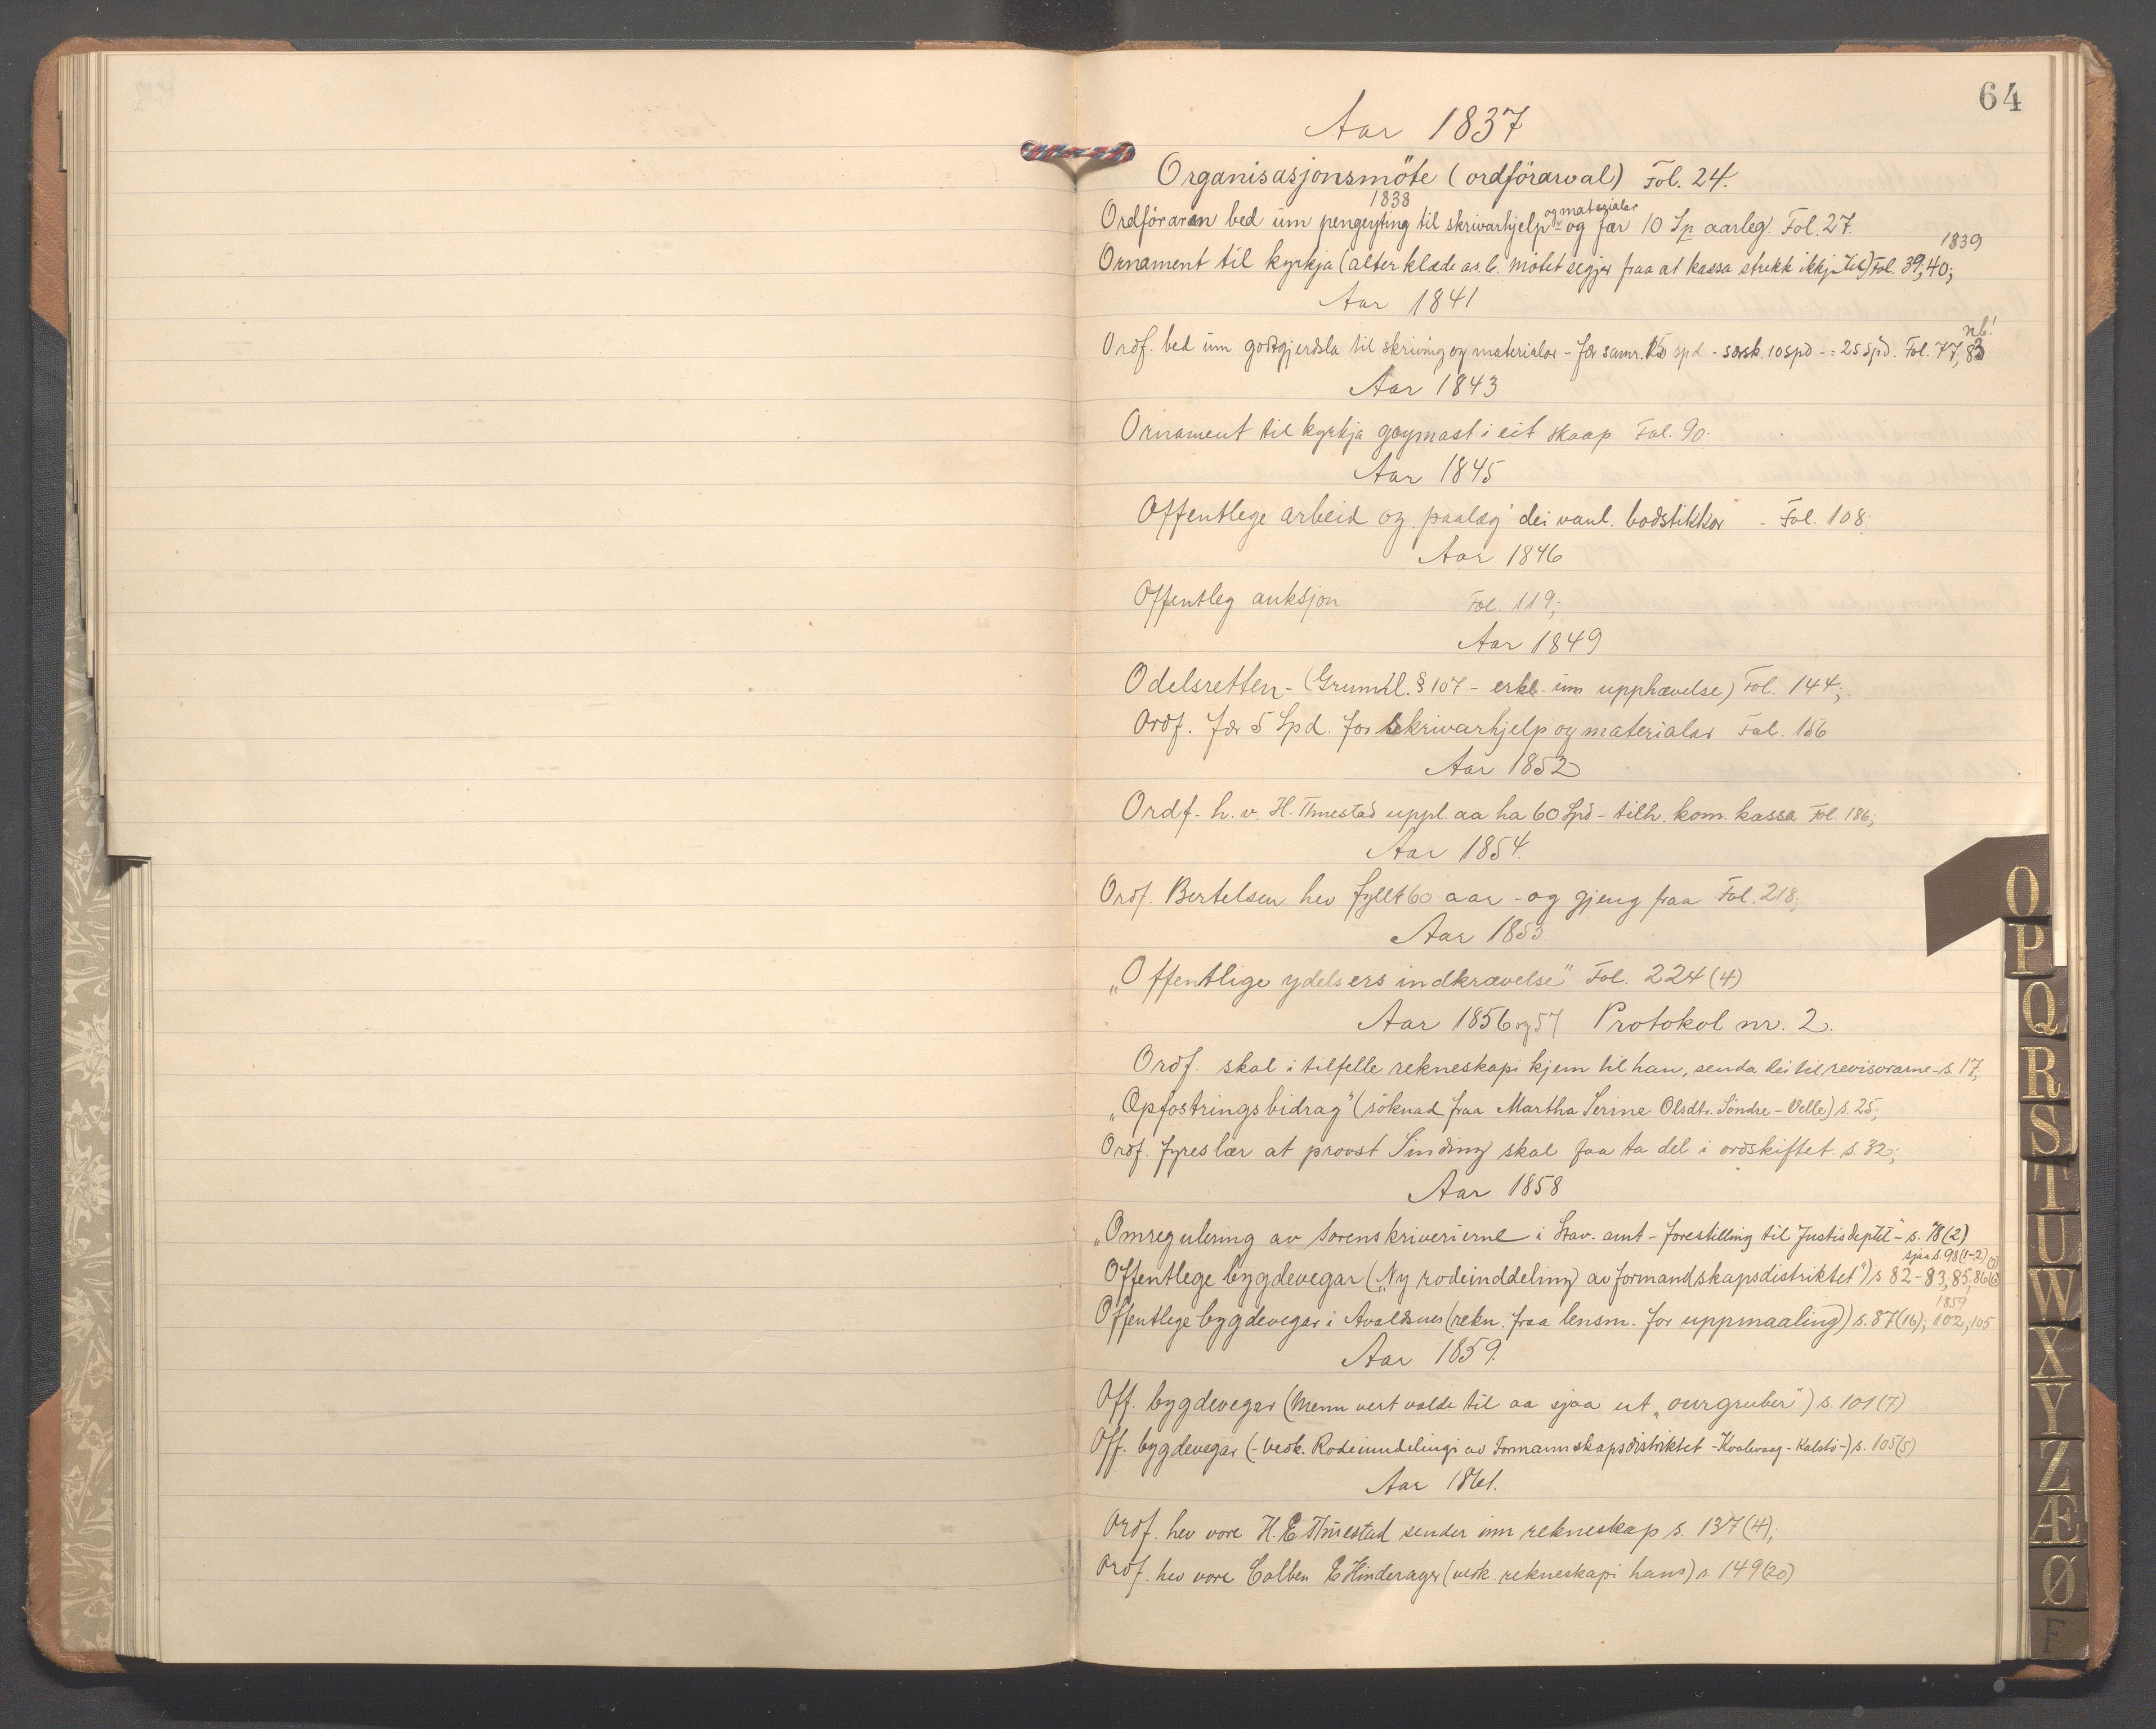 64
Aar 1837
Organisasjonsmöte (ordförarval) Fol. 24.
1838
Ordföraren bed um pengeyting til skrivarhjelp og materialar og fær 10 Sp aarleg. Fol. 27.
1839
Ornament til kyrkja (alterklæde as. b. Mötet segjer fraa at kassa strekk ikkje til) Fol. 39, 40;
Aar 1841
nb!
Ordf. bed um godtgjerdsla til skriving og materialar - fær samr. 15 spd - særsk. 10 spd - = 25 Spd. Fol. 77, 83
Aar 1843
Ornament til kyrkja gøymast i eit skaap Fol. 90.
Aar 1845
Offentlege arbeid og "paalæg" dei vanl. bodstikkor - Fol. 108;
Aar 1846
Offentleg auksjon Fol. 119;
Aar 1849
Odelsretten - (Grunnl. § 107 - erkl. um upphævelse) Fol. 144;
Ordf. fær 5 Spd. for skrivarhjelp og materialar Fol. 156
Aar 1852
Ordf. h. v. H. Thuestad uppl. aa ha 60 Spd - tilh. kom. kassa Fol. 186;
Aar 1854.
Ordf. Bertelsen hev fyllt 60 aar - og gjeng fraa Fol. 218;
Aar 1853
"Offentlige ydelsers indkrævelse" Fol. 224 (4)
Aar 1856 og 57 Protokol nr. 2.
Ordf. skal i tilfelle rekneskapi kjem til han, senda dei til revisorarne - s. 17;
"Opfostringsbidrag" (söknad fraa Martha Serine Olsdtr. Söndre - Velle) s. 25;
Ordf. fyreslær at provst Sinding skal faa ta del i ordskiftet. s. 32;
Aar 1858
"Omregulering av sorenskriverierne i Stav. amt - forestilling til Justisdeptet" - s. 78 (2)
sjaa s. 98 (1-2)
Offentlege bygdevegar ("Ny rodeinddeling av formandskapsdistriktet") s 82 - 83, 85, 86 (6)
1859
Offentlege bygdevegar i Avaldsnes (rekn. fraa lensm. for uppmaaling) s. 87 (16); 102, 105
Aar 1859.
Off. bygdevegar (Menn vert valde til aa sjaa ut "ourgruber") s. 101 (7)
Off. bygdevegar (- vedk. Rodeinndelingi av Formannskapsdistriktet - Kvalevaag - Kalstö -) s. 105 (5)
Aar 1861.
Ordf. hev vore H. E. Thuestad sender inn rekneskap s. 137 (4);
Ordf. hev vore Colben E Hinderager (vedk. rekneskapi hans) s. 149 (20)
O
P
Q
R
S
T
U
W
X
Y
Z
Æ
Ø